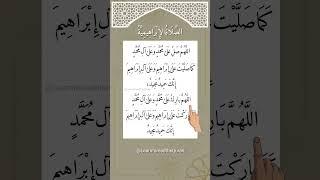 الصَّلَاةُ الإِبْرَاهِيمِيَّة
اللَّهُمَّ صَلِّ عَلَى مُحَمَّدٍ وَعَلَى آلِ مُحَمَّدٍ
كَمَا صَلَّيْتَ عَلَى إِبْرَاهِيمَ وَعَلَى آلِ إِبْرَاهِيمَ
إِنَّكَ حَمِيدٌ مَجِيدٌ
اللَّهُمَّ بَارِكْ عَلَى مُحَمَّدٍ وَعَلَى آلِ مُحَمَّدٍ
كَمَا بَارَكْتَ عَلَى إِبْرَاهِيمَ وَعَلَى آلِ إِبْرَاهِيمَ
إِنَّكَ حَمِيدٌ مَجِيدٌ